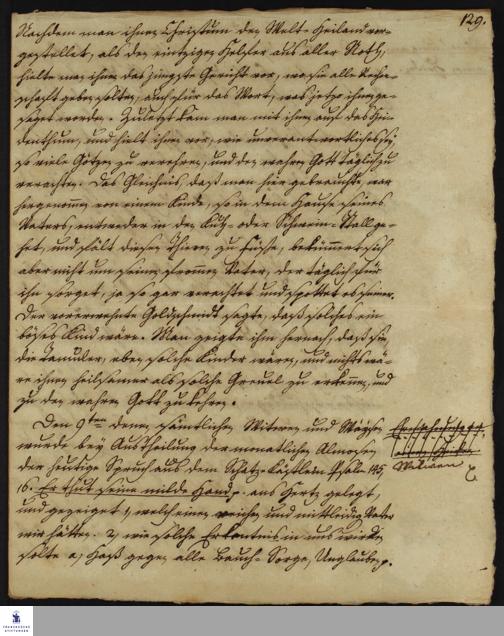 129.
Nachdem man ihnen Christum den Welt-Heiland vor-
gestellet, als den eintzigen Helffer aus aller Noth,
hielte man ihnen das jüngste Gericht vor, wo sie alle Rechen-
schafft geben solten, auch für das Wort, was jetzo ihnen ge-
saget worden. Zuletzt kam man mit ihnen auf das Hei-
denthum, und hielt ihnen vor, wie unverantwortlich es sey,
so viele Götzen zu verehren, und den wahren Gott täglich zu
verachten. Das Gleichnis, daß man hier gebrauchte, war
hergenommen von einem Kinde, so in dem Hause seines
Vaters, entweder in den Kuh- oder Schwein-Stall ge-
het, und fält diesen Thieren zu Füsse, bekümmert sich
aber nicht um seinen frommen Vater, der täglich für
ihn sorget, ja so gar verachtet und spottet es seiner.
Der vorerwehnte Goldschmidt sagte, daß solches ein
böses Kind wäre. Man zeigte ihm hernach, daß sie,
die Tamuler, eben solche Kinder wären, und nichts wä-
re ihnen heilsamer als solche Greuel zu erkennen, und
zu dem wahren Gott zu kehren.
Den 9ten denen sämtlichen Witwen und Waysen
wurde bey Austheilung der monatlichen Almosen
der heutige Spruch aus dem Schatz-Kästlein Psalm 145,
16. Er thut seine milde Hand p. ans Hertz gelegt,
und gezeiget 1, welch einen reichen und mittleidigen Vater
wir hätten. 2, wie solche Erkäntnis in uns wircken
solte a, Haß gegen alle Bauch-Sorge, Unglauben p.
Witwen
FRANCKESCHE
STIFTUNGEN